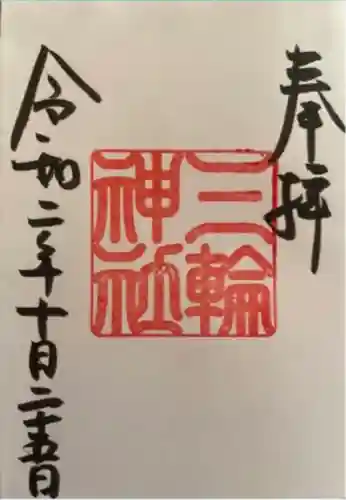 奉拝
三輪
神社
令和二年十月二十五日